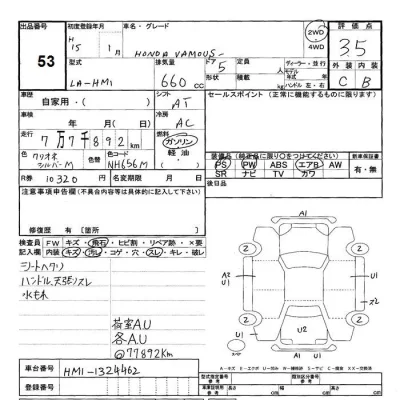 出品番号 53
初度登録年月 H 15 年 1 月
車名・グレード HONDA VAMOS
2WD 4WD
評価点 3.5
型式 LA-HM1
排気量 660 cc
ドア 5
形状
定員 名
積載 kg
ディーラー・並行
モデル 年式
ハンドル 左・右
外装 内装
C B
車歴 自家用・( )
シフト AT
セールスポイント (正常に機能するものに限ります)
車検 年 月( 日)
冷房 AC
走行 7万7千892 km
燃料 ガソリン 軽油 ( )
色 色替 色コード NH656M
R券 10320 円
自動車税 月 円
装備品(純正品に限り○をつけてください)
PS PW ABS エアB AW
SR ナビ TV カワ
新車保証書 有・無
注意事項申告欄(不具合内容を詳細に記入して下さい)
後日品
修復歴 有( )箇所
検査員記入欄
FW キズ・飛石・ヒビ割・リペア跡・×要
内装 キズ・汚れ・コゲ・穴・スレ・キレ・破レ
シートヘタリ
水モ木
荷室AU
各AU
@77892Km
A1
2 2
A2 U1
U1
X2
U2
2 2
U1
A1 U1
車台番号 HM1-1324462
登録番号
型式指定番号 参考
類別区分番号 参考
長さ cm 幅 cm 高さ cm